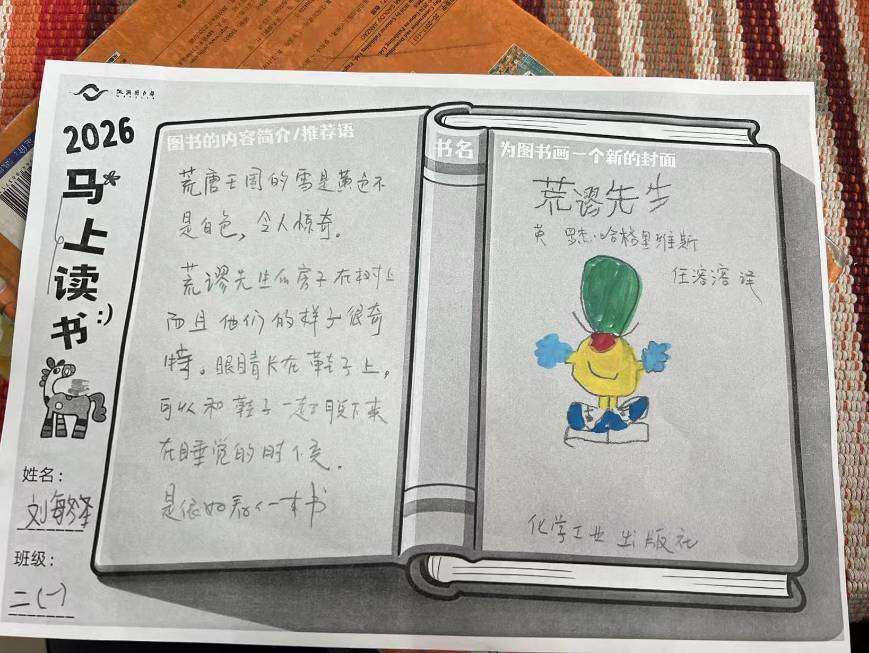 2026
马上读书:)
姓名:
刘
班级:
二(一)
图书的内容简介/推荐语
荒唐王国的雪是黄色不
是白色,令人惊奇。
荒谬先生的房子在树上
而且他们的样子很奇
特。眼睛长在鞋子上,
可以和鞋子一起脱下来
在睡觉的时候.
书名
为图书画一个新的封面
荒谬先生
英 罗杰·哈格里维斯
任溶溶 译
化学工业出版社